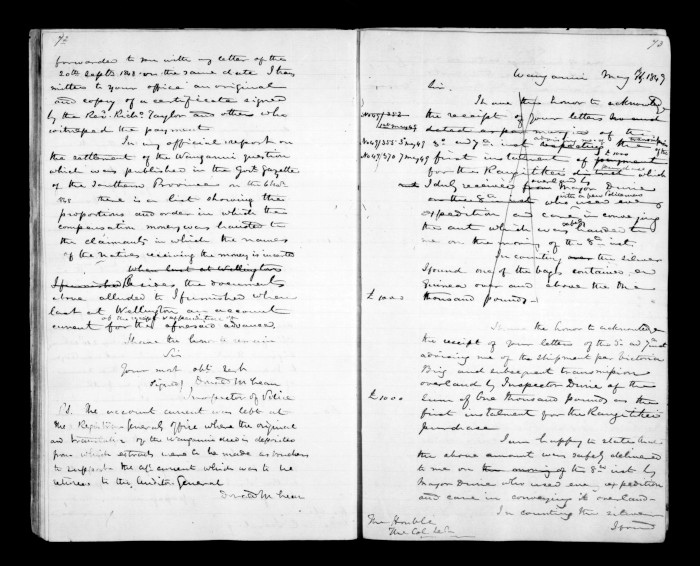 72
forwarded to you with my letter of the
20th Septr 1848 on the same date I trans
mitted to your office an original
and copy of a certificate signed
by the Revd Richd Taylor and others who
witnessed the payment
In my official report on
the settlement of the Wanganui question
which was published in the Govt Gazette
of the Southern Province on the
1848 there is a list showing the
proportions and order in which the
compensation money was handed to
the claimants in which the names
of the natives receiving the money is inserted
When last at Wellington
I furnished Besides the documents
above alluded to I furnished when
last at Wellington an account
current for the aforesaid advances.
I have the honor to remain
Sir
Your most obt Servt
Signed, Donald McLean
Inspector of Police
P.S. The account current was left at
the Registrar Generals Office where the original
and translation of the Wanganui deed is deposited
from which extracts were to be made as vouchers
to support the act current which was to be
returned to the Auditor General
Donald McLean
73
Wanganui May 1849
Sir.
I have the honor to acknowledge
No 49/352
the receipt of your letters
dated as per margin of the
No 49/355 5 May 49
3rd and 7th inst respecting the
advising me of
No 49/370 7 May 49
first instalment of payment
£1000
for the Rangitikei district which
purchase
I duly received from Major Durie
overland by
who used every
with a few policemen
expedition and care in conveying
the amt which was handed to
safely
me on the morning of the 8th inst.
In counting over the silver
I found one of the bags contained one
Guinea over and above the One
£1000 thousand pounds
I have the honor to acknowledge
the receipt of your letters of the 3rd and 7th inst
advising me of the shipment per Victoria
Brig and subsequent transmission
overland by Inspector Durie of the
£1000 Sum of One thousand pounds as the
first instalment for the Rangitikei
purchase
I am happy to state that
the above amount was safely delivered
to me on the morning of the 8th inst by
Major Durie who used every expedition
and care in conveying it overland
In counting the silver
I found
The Honble
The Col. Sec